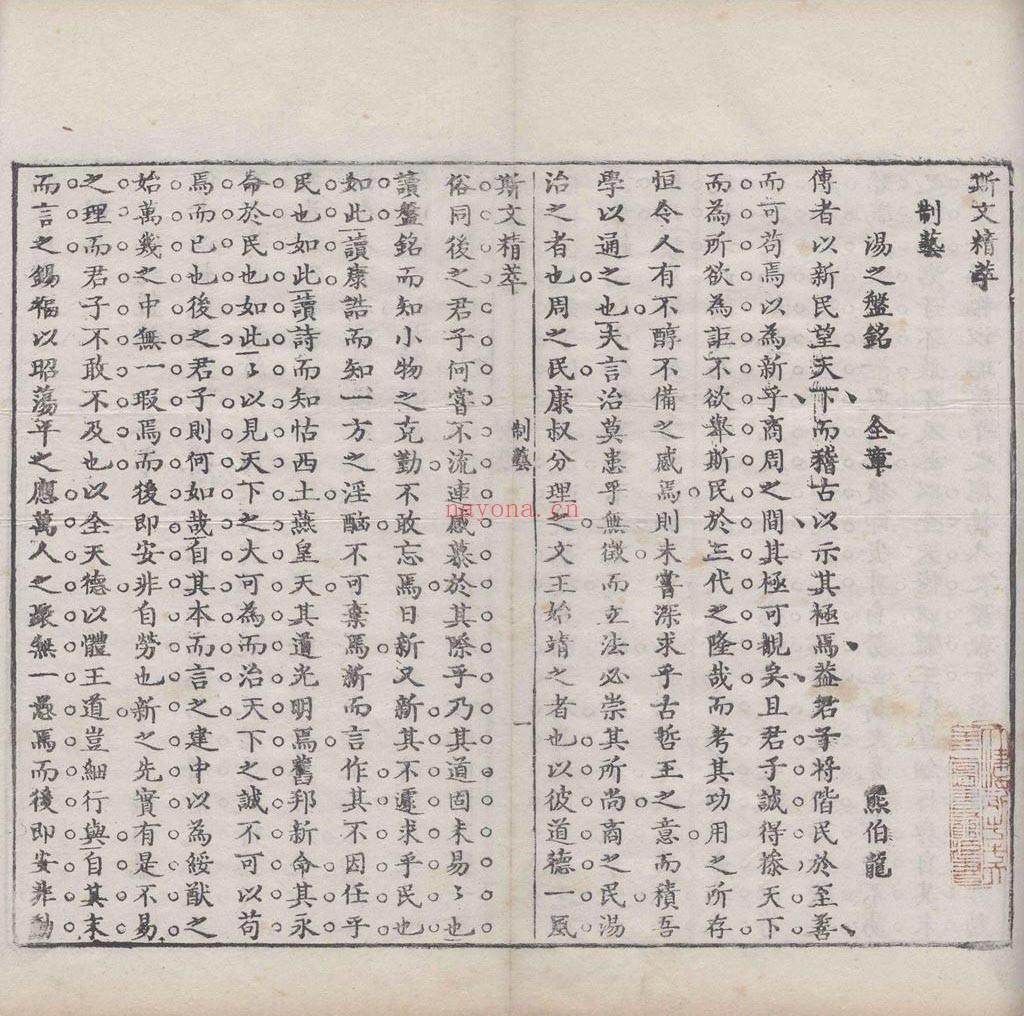 斯文精萃
制藝
湯之盤銘 全章 熊伯龍
傳者以新民望天下而稽古以示其極焉蓋君子將偕民於至善
而可苟焉以為新乎商周之間其極可觀矣且君子誠得操天下
而為所欲為詎不欲舉斯民於三代之隆哉而考其功用之所存
恒令人有不醇不備之感焉則未嘗深求乎古哲王之意而積吾
學以通之也夫言治莫患乎無徵而立法必崇其所尚商之民湯
治之者也周之民康叔分理之文王始靖之者也以彼道德一風
斯文精萃 制藝 一
俗同後之君子何嘗不流連感慕於其際乎乃其道固未易々也
讀盤銘而知小物之克勤不敢忘焉日新又新其不遽求乎民也
如此讀康誥而知一方之淫酗不可棄焉新而言作其不因任乎
民也如此讀詩而知怙西土燕皇天其道光明焉舊邦新命其永
侖於民也如此々以見天下之大可為而治天下之誠不可以苟
焉而已也後之君子則何如哉自其本而言之建中以為綏猷之
始萬幾之中無一瑕焉而後即安非自勞也新之先實有是不易
之理而君子不敢不及也以全天德以體王道豈細行與自其末
而言之錫福以昭蕩平之應萬人之眾無一愚焉而後即安非勤
nayona.cn